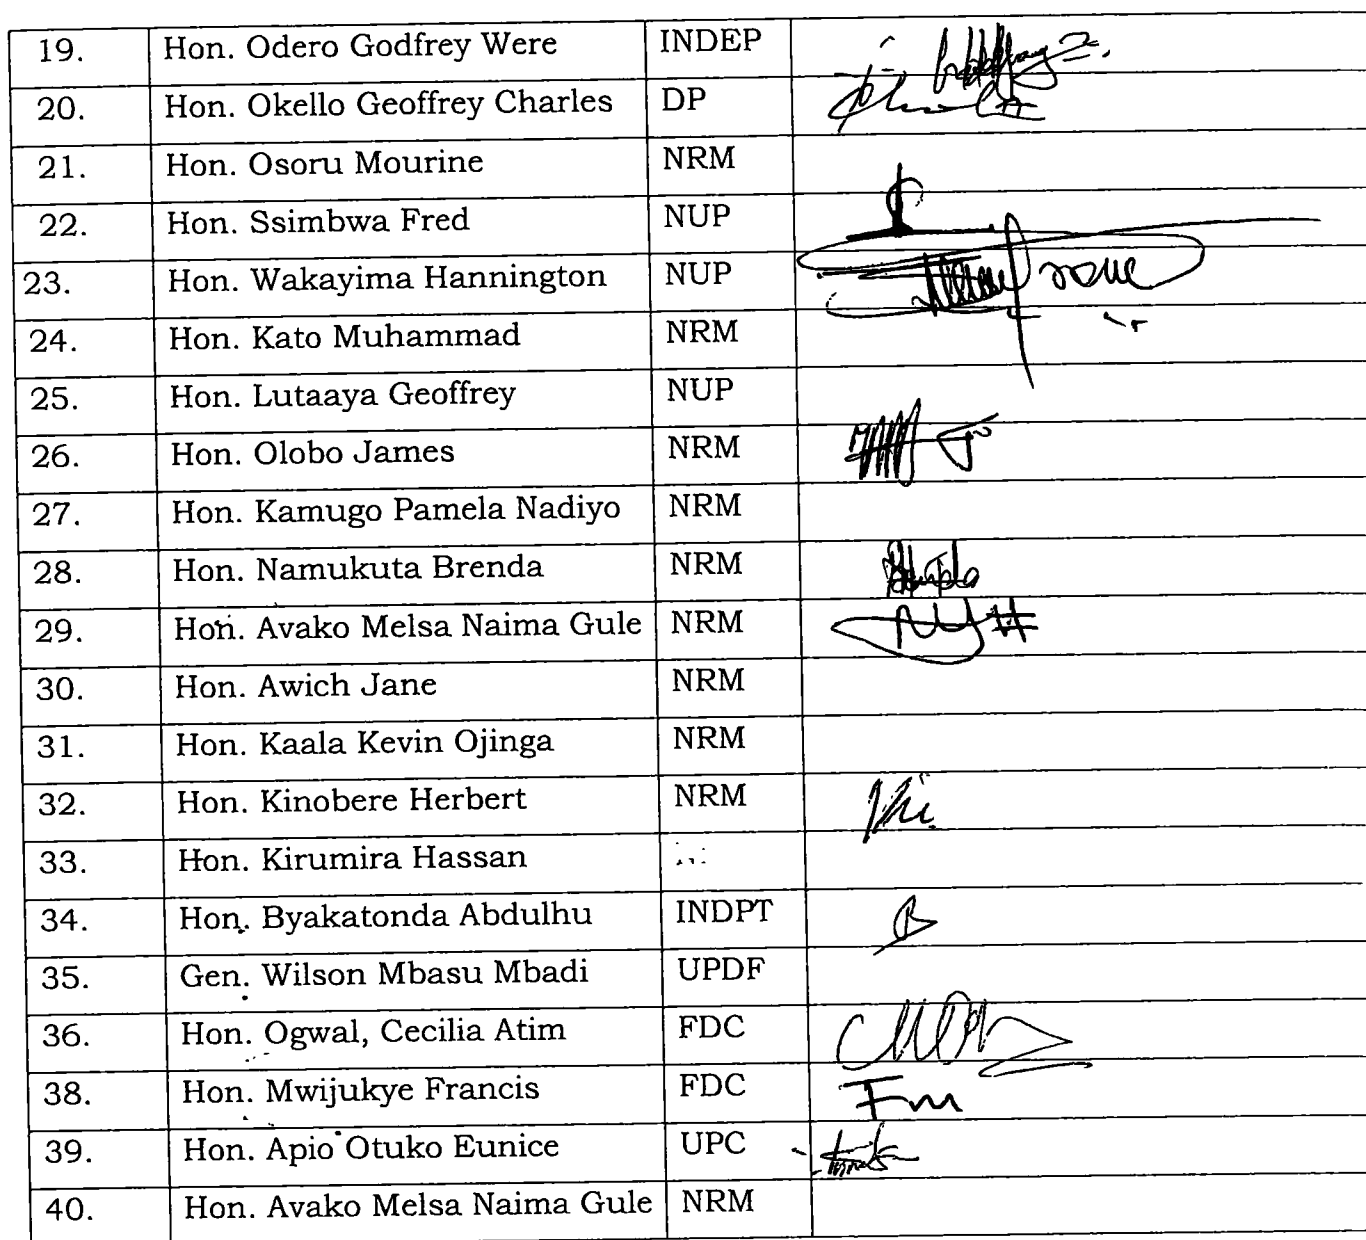 19. Hon. Odero Godfrey Were INDEP
20. Hon. Okello Geoffrey Charles DP
21. Hon. Osoru Mourine NRM
22. Hon. Ssimbwa Fred NUP
23. Hon. Wakayima Hannington NUP
24. Hon. Kato Muhammad NRM
25. Hon. Lutaaya Geoffrey NUP
26. Hon. Olobo James NRM
27. Hon. Kamugo Pamela Nadiyo NRM
28. Hon. Namukuta Brenda NRM
29. Hon. Avako Melsa Naima Gule NRM
30. Hon. Awich Jane NRM
31. Hon. Kaala Kevin Ojinga NRM
32. Hon. Kinobere Herbert NRM
33. Hon. Kirumira Hassan
34. Hon. Byakatonda Abdulhu INDPT
35. Gen. Wilson Mbasu Mbadi UPDF
36. Hon. Ogwal, Cecilia Atim FDC
38. Hon. Mwijukye Francis FDC Fm
39. Hon. Apio Otuko Eunice UPC
40. Hon. Avako Melsa Naima Gule NRM